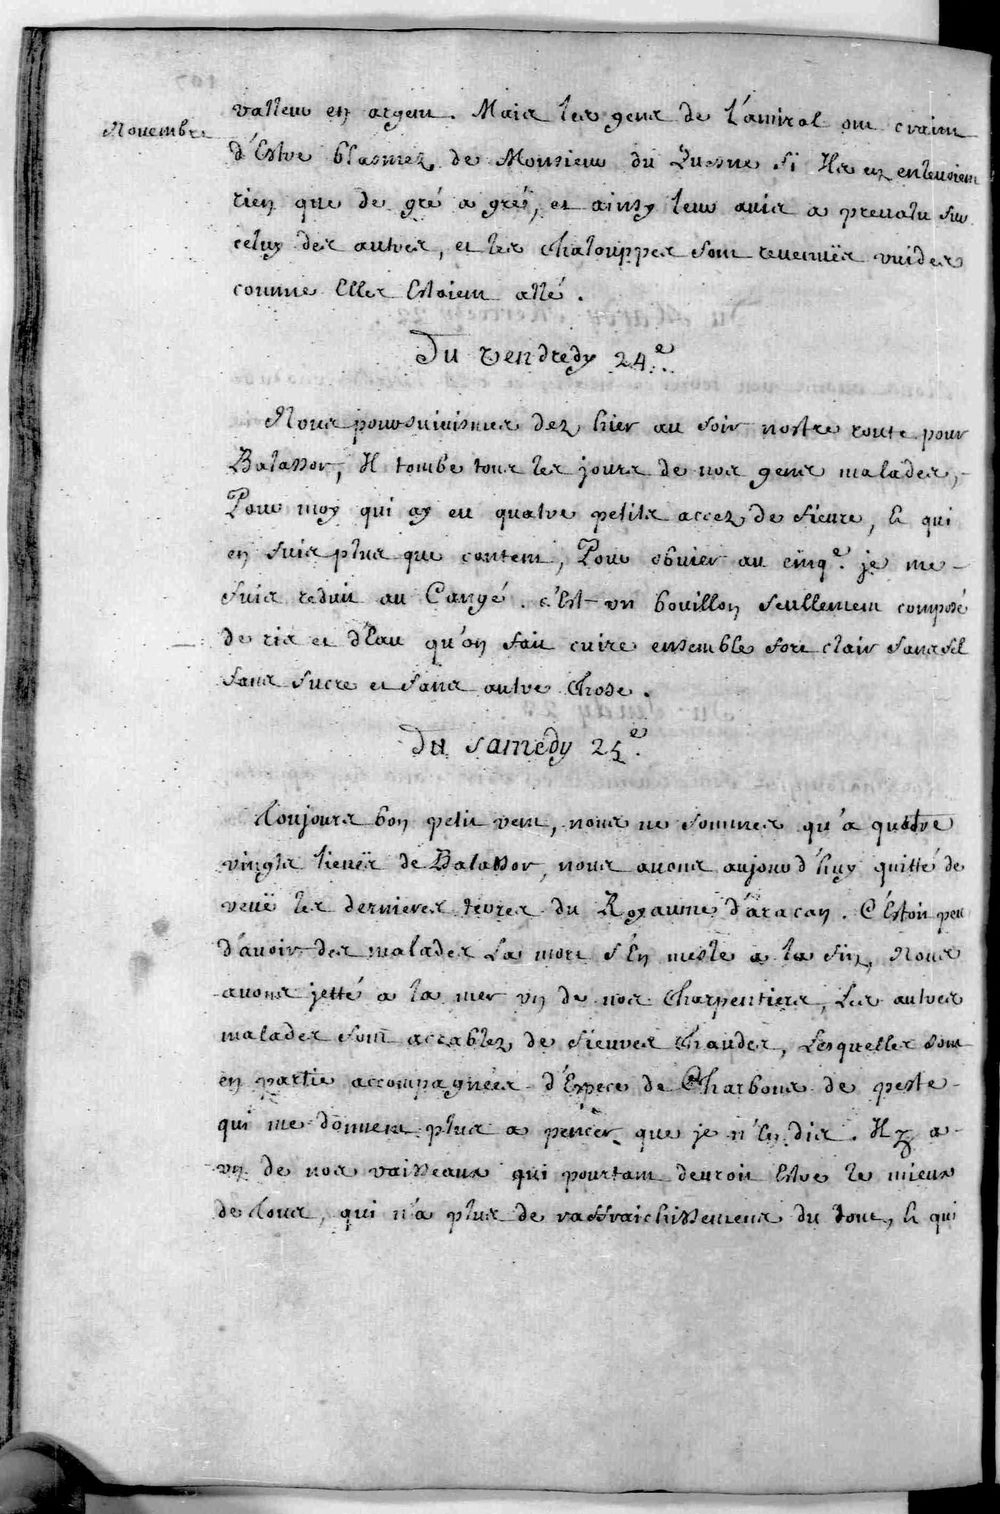 Novembre
valleur en argent. Mais les gens de l'amiral ont craint
d'Estre blasmez de Monsieur du Quesne si Ils en enlevoient
rien que de gré a gré, et ainsy leur avis a prevalu sur
celuy des autres, et les chalouppes sont revenuës vuides
comme Elles Estoient allé.
Du vendredy 24e.
Nous poursuivismes dez hier au soir nostre route pour
Balassor, Il tombe tous les jours de nos gens malades,
Pour moy qui ay eu quatre petits accez de fievre, le qui
en suis plus que content, Pour obvier au cinqe. je me
suis reduit au Cangé. c'Est un bouillon seullement composé
de ris et d'Eau qu'on fait cuire ensemble fort clair sans sel
sans sucre et sans autre chose.
Du samedy 25e.
Toujours bon petit vent, nous ne sommes qu'a quatre
vingts lieuës de Balassor, nous avons aujourd'huy quitté de
veuë les dernieres terres du Royaume d'aracan. C'Estoit peu
d'avoir des malades La mort s'En mesle a la fin, Nous
avons jetté a la mer un de nos Charpentiers, Les autres
malades sont accablez de fievres chaudes, Lesquelles sont
en partie accompagnées d'Espece de Charbons de peste
qui me donnent plus a pencer que je n'En dis. Il y a
un de nos vaisseaux qui pourtant devroit Estre le mieux
de tous, qui n'a plus de raffraichissemens du tout, le qui